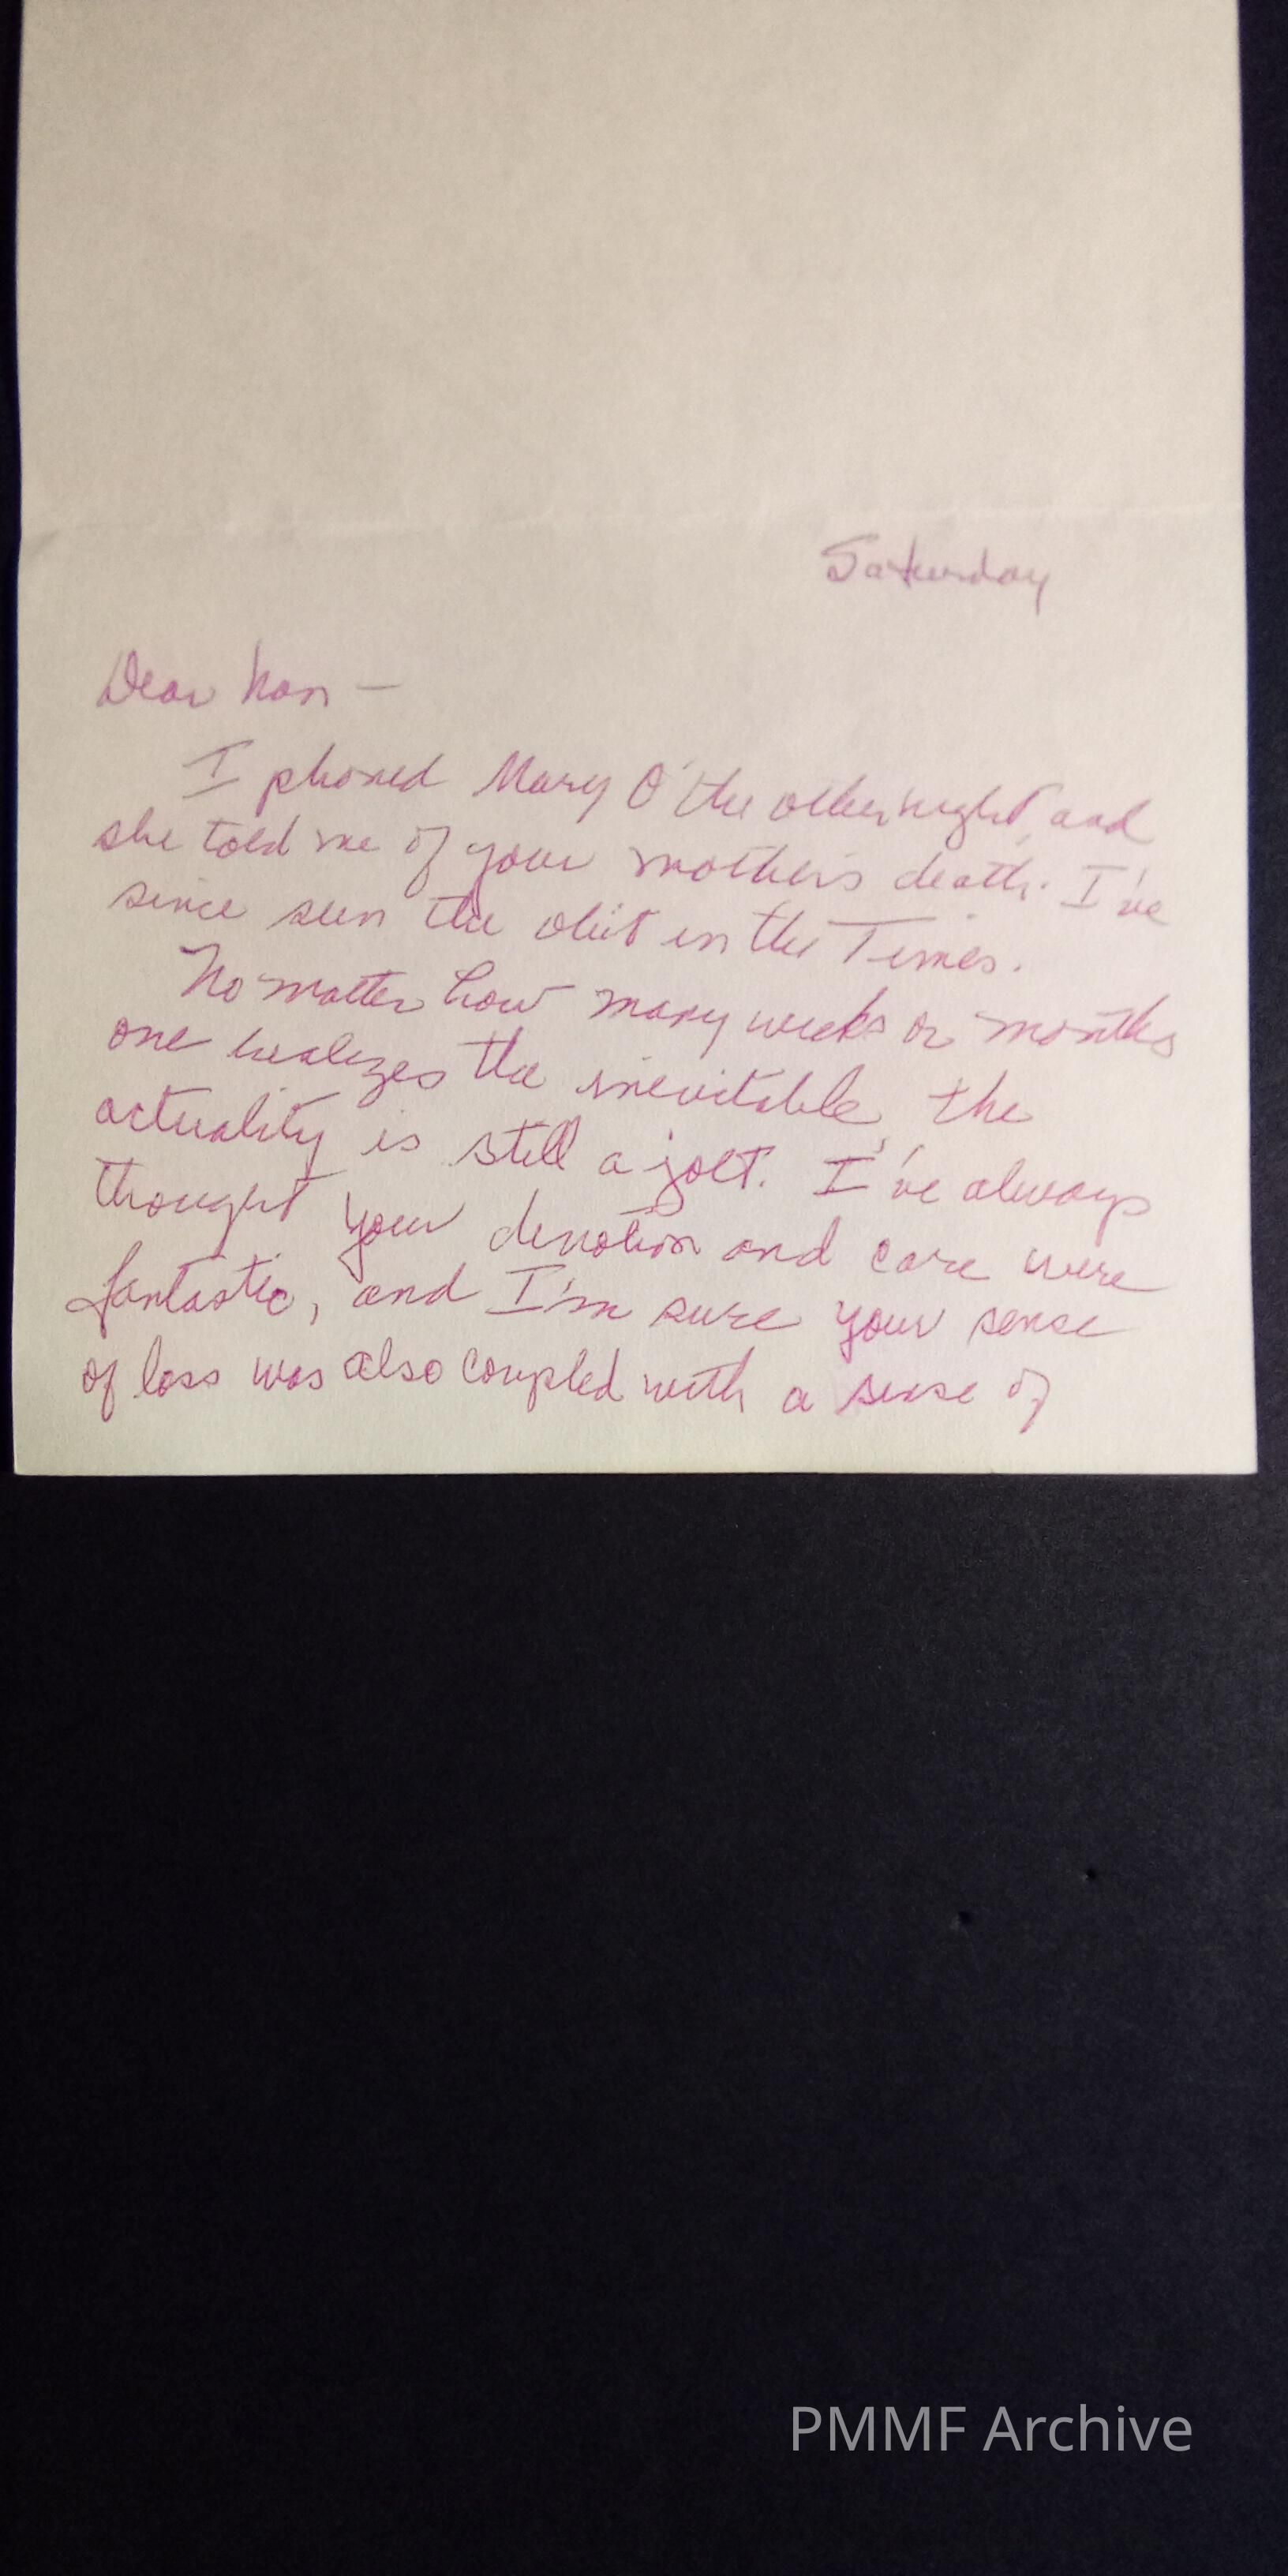 Saturday
Dear Nan —
I phoned Mary O' the other night and
she told me of your mother's death. I've
since seen the obit in the Times.
No matter how many weeks or months
one realizes the inevitable, the
actuality is still a jolt. I've always
thought your devotion and care were
fantastic, and I'm sure your sense
of loss was also coupled with a sense of
PMMF Archive